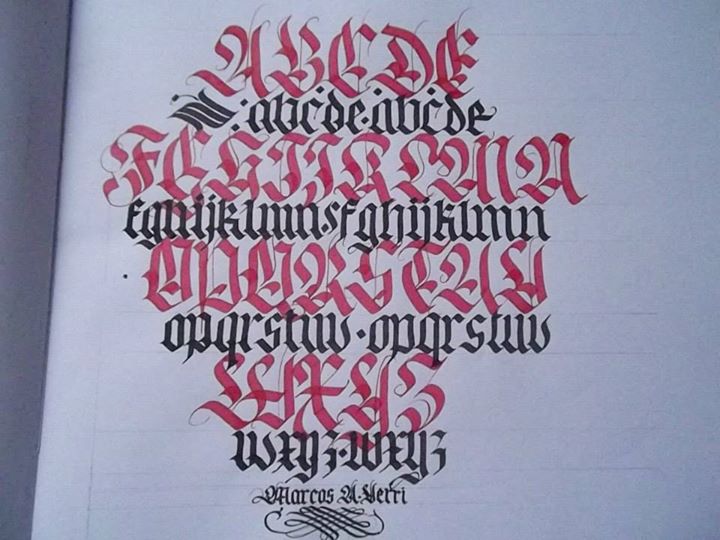 ABCDE
:abcde·abcde
FGHIJKLMN
fghijklmn·fghijklmn
OPQRSTUV
opqrstuv·opqrstuv
WXYZ
wxyz·wxyz
Marcos A. Verri